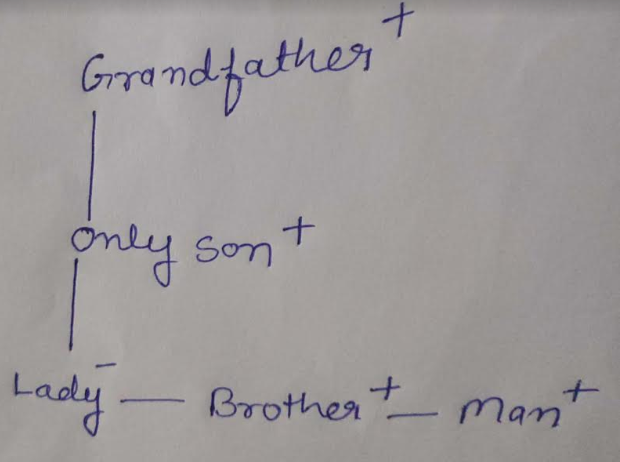 Grandfather +
Only son +
Lady - — Brother + — Man +